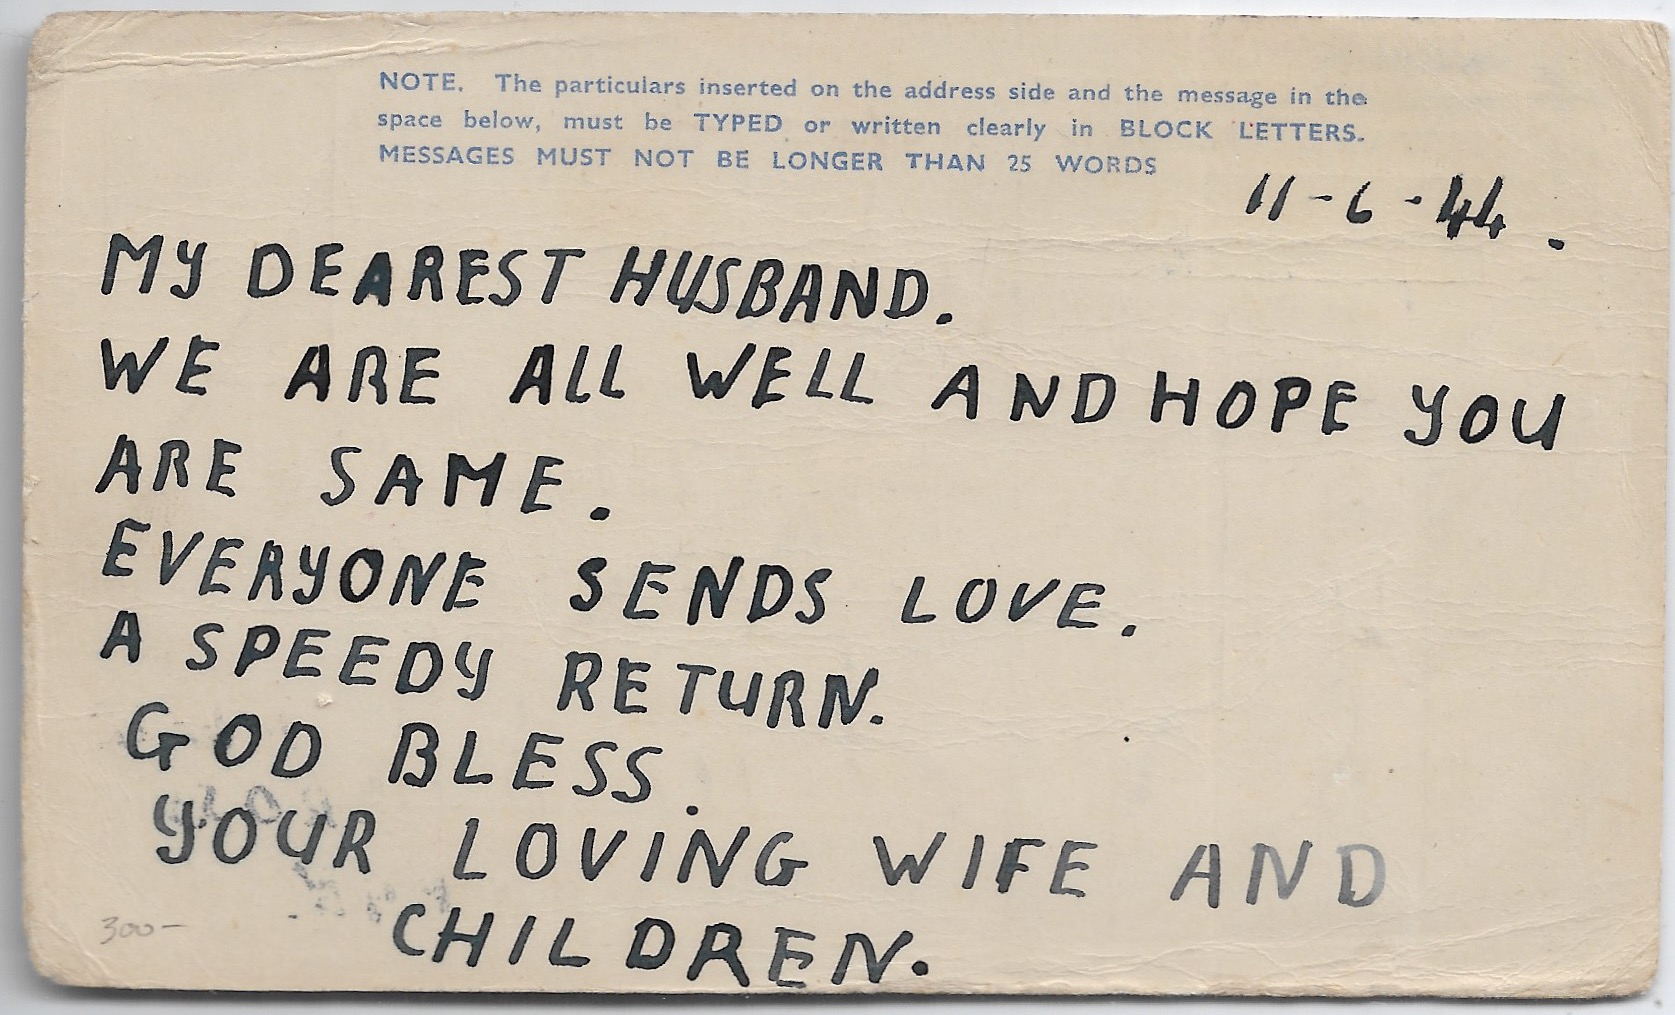 NOTE. The particulars inserted on the address side and the message in the
space below, must be TYPED or written clearly in BLOCK LETTERS.
MESSAGES MUST NOT BE LONGER THAN 25 WORDS
11-6-44.
MY DEAREST HUSBAND.
WE ARE ALL WELL AND HOPE YOU
ARE SAME.
EVERYONE SENDS LOVE.
A SPEEDY RETURN.
GOD BLESS.
YOUR LOVING WIFE AND
CHILDREN.
300-